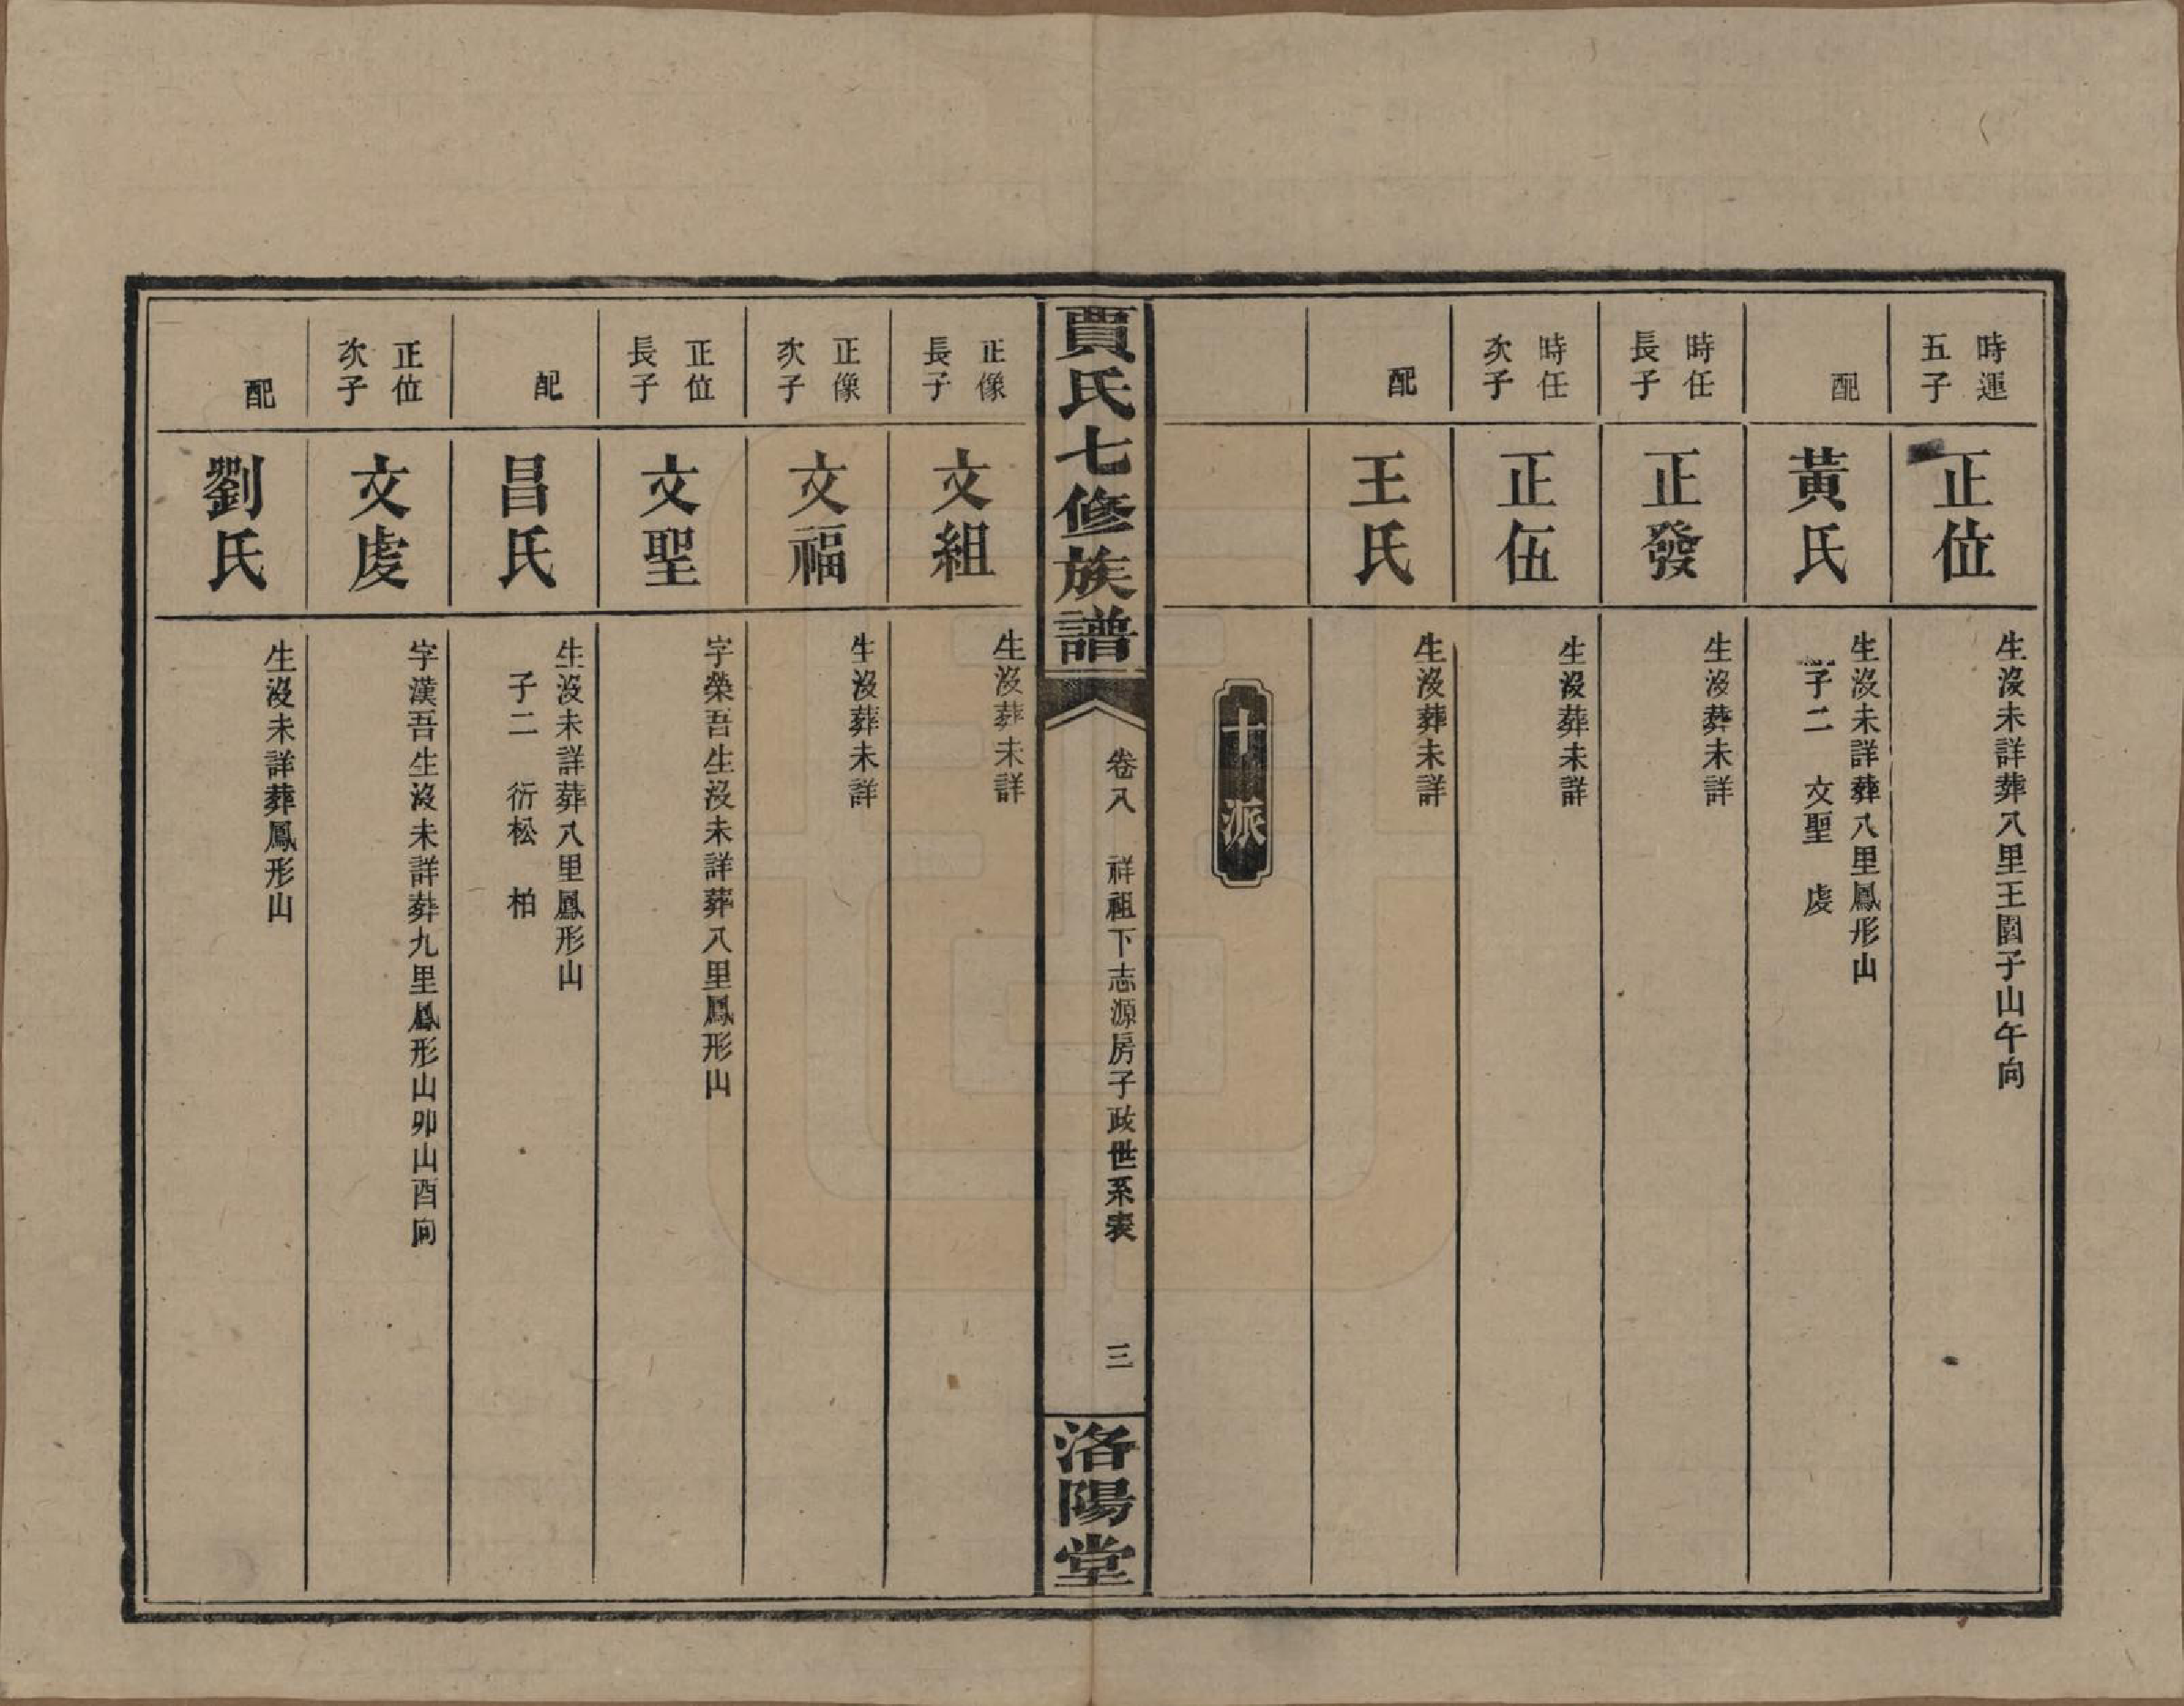 時運
五子
正位
生沒未詳葬八里王園子山午向
配
黃氏
生沒未詳葬八里鳳形山
子二　文聖　虔
時任
長子
正發
生沒葬未詳
時任
次子
正伍
生沒葬未詳
配
王氏
生沒葬未詳
十派
賈氏七修族譜
卷八　祥祖下志源房子政世系表
三
洛陽堂
正像
長子
文組
生沒葬未詳
正像
次子
文福
生沒葬未詳
正位
長子
文聖
字榮吾生沒未詳葬八里鳳形山
配
昌氏
生沒未詳葬八里鳳形山
子二　衍松　柏
正位
次子
文虔
字漢吾生沒未詳葬九里鳳形山卯山酉向
配
劉氏
生沒未詳葬鳳形山